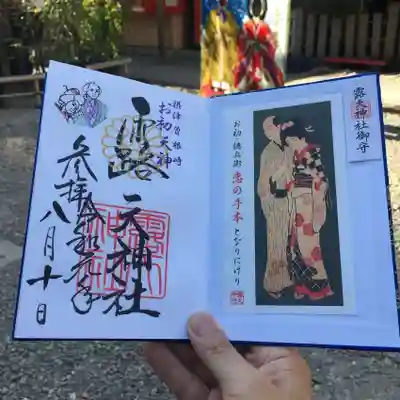 露天神社御守
お初 徳兵衛 恋の手本 となりにけり
摂津曽根崎
お初天神
露 天神社
参拝 令和元年
八月十日